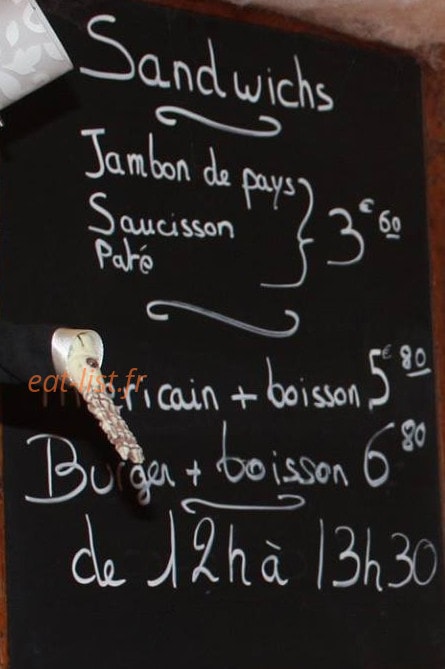 Sandwichs
Jambon de pays
Saucisson
Paté
3€60
eat-list.fr
ricain + boisson 5€80
Burger + boisson 6 80
de 12h à 13h30